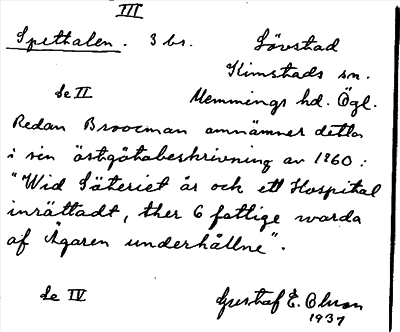 III
Spetthalen. 3 br. Lövstad
Kimstads sn.
Se II Memmings hd. Ögl.
Redan Broocman omnämner detta
i sin östgötabeskrivning av 1860:
"Wid Säteriet är ock ett Hospital
inrättadt, ther 6 fattige warda
af Ägaren underhållne".
Se IV Gustaf E. Olsson
1937